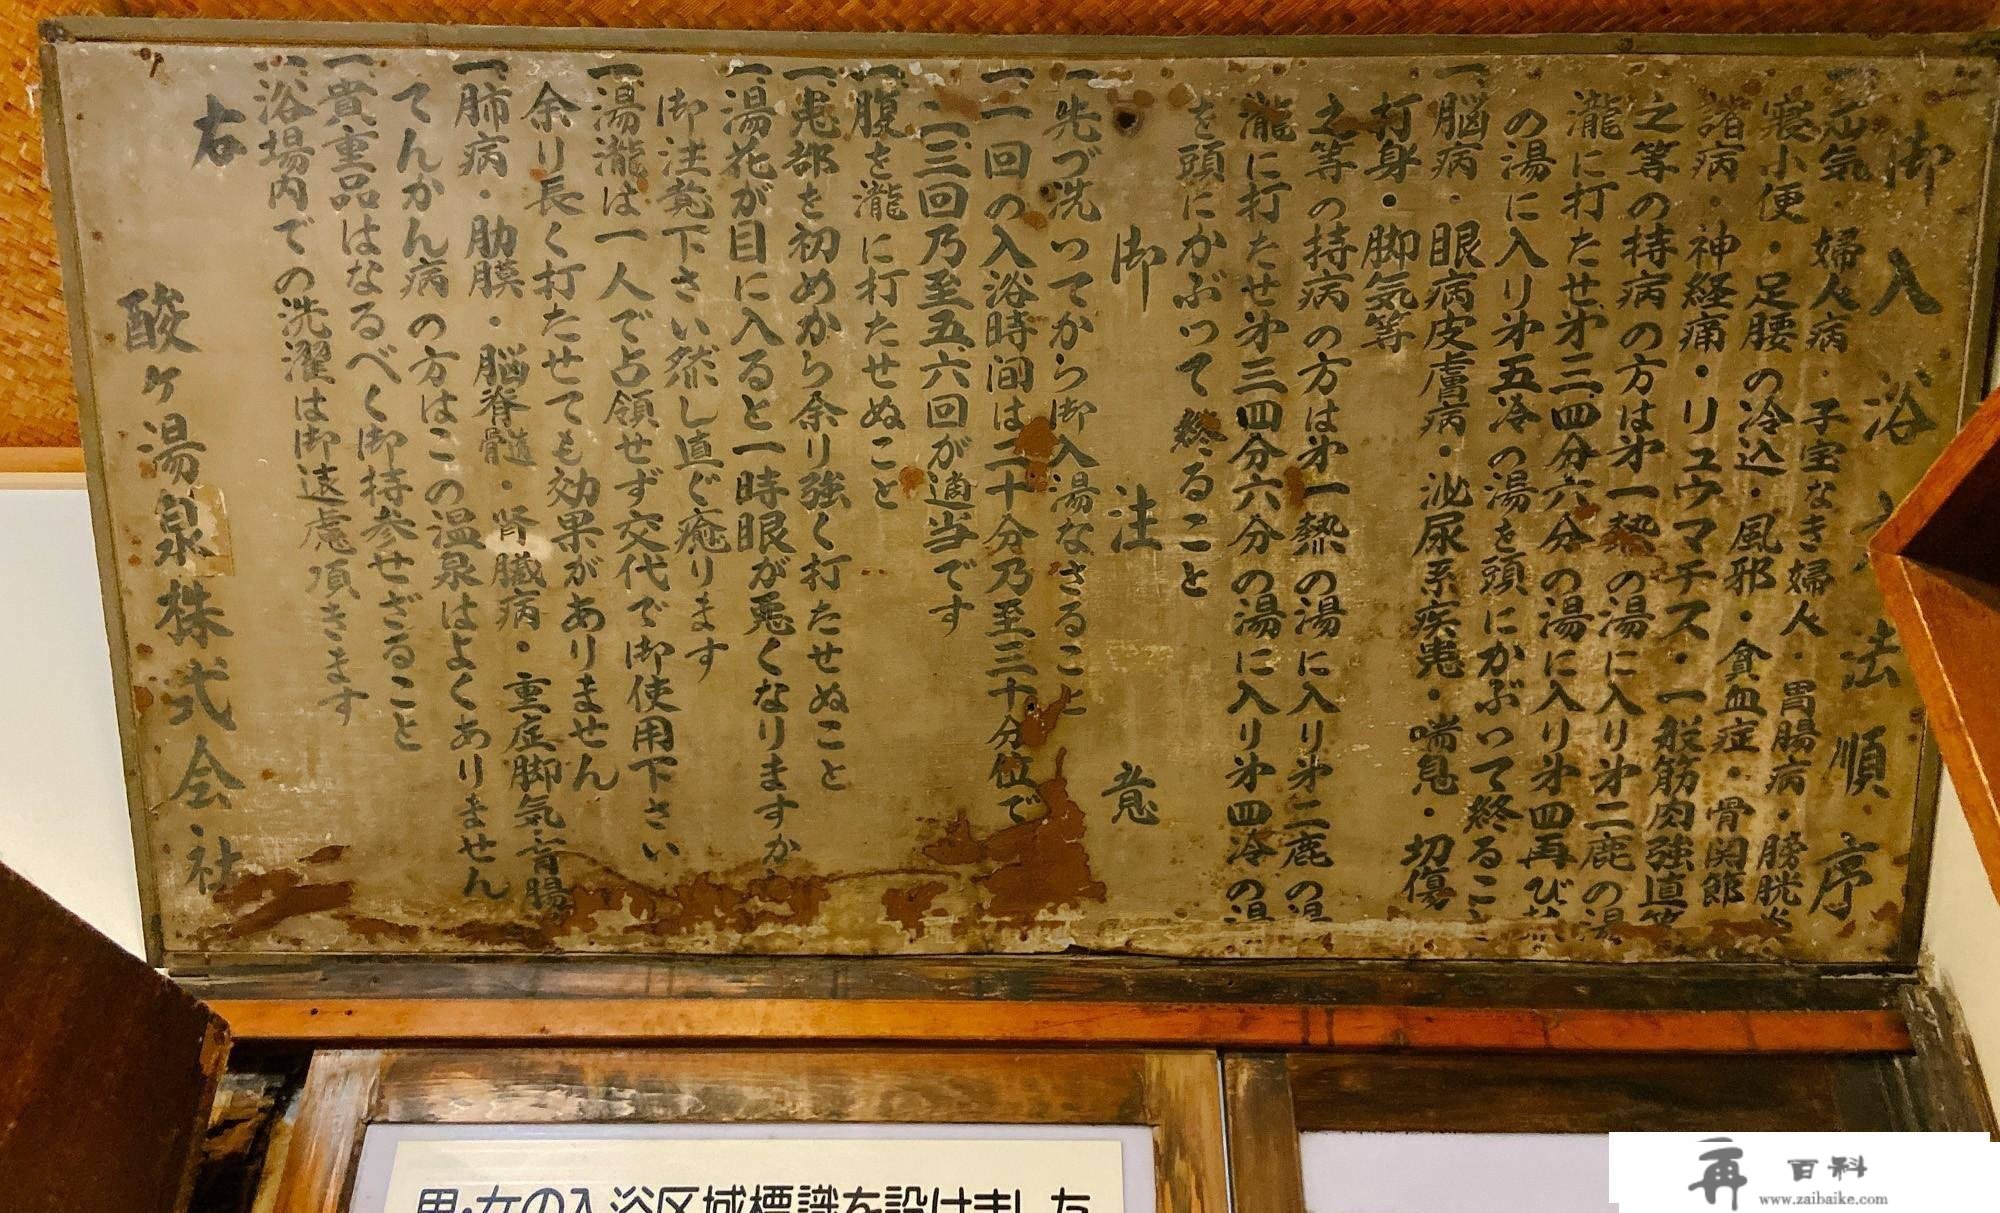 御入浴方法順序
一、疝気・婦人病・子宝なき婦人・胃腸病・膀胱炎
寝小便・足腰の冷込・風邪・貧血症・骨関節
諸病・神経痛・リュウマチス・一般筋肉強直等
之等の持病の方は㐧一熱の湯に入り㐧二鹿の湯
瀧に打たせ㐧三、四分六分の湯に入り㐧四再び熱
の湯に入り㐧五冷の湯を頭にかぶつて終ること
一、脳病・眼病皮膚病・泌尿系疾患・喘息・切傷
打身・脚気等
之等の持病の方は㐧一熱の湯に入り㐧二鹿の湯
瀧に打たせ㐧三四分六分の湯に入り㐧四冷の湯
を頭にかぶつて終ること
御注意
一、先づ洗つてから御入湯なさること
一、一回の入浴時間は二十分乃至三十分位で
二、三回乃至五、六回が適当です
一、腹を瀧に打たせぬこと
一、患部を初めから余り強く打たせぬこと
一、湯花が目に入ると一時眼が悪くなりますから
御注意下さい然し直ぐ癒ります
一、湯瀧は一人で占領せず交代で御使用下さい
余り長く打たせても効果がありません
一、肺病・肋膜・脳脊髄・腎臓病・重症脚気・盲腸
てんかん病の方はこの温泉はよくありません
一、貴重品はなるべく御持参せざること
一、浴場内での洗濯は御遠慮頂きます
右
酸ヶ湯泉株式会社
男・女の入浴区域標識を設けました
再 百科
www.zaibaike.com